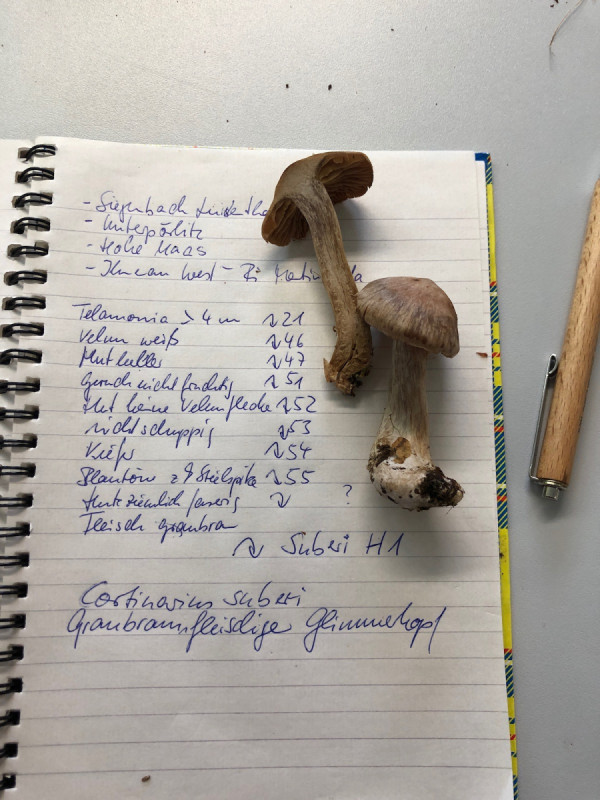 - Siegenbach
- Unterpörlitz
- Hohe Maas
- Ilmenau West -
Telamonia > 4 cm ~> 21
Velum weiß ~> 46
Hut heller ~> 47
Geruch nicht fruchtig ~> 51
Hut keine Velumflecke ~> 52
nicht schuppig ~> 53
Kiefer ~> 54
Blautöne Stielspitze ~> 55
Hut ziemlich faserig ~> ?
Fleisch graubraun
~> Suberi H1
Cortinarius suberi
Graubraunfleischige Glimmerkopf